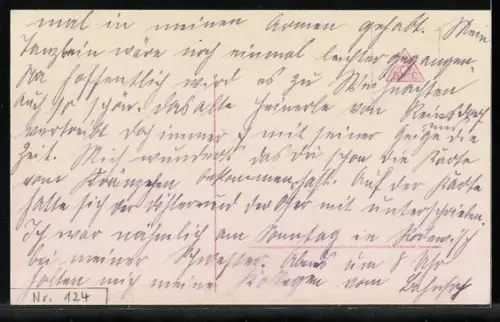 mal in meinen Armen gehabt. Mein
Tanzbein wäre noch einmal leichter gegangen.
Na hoffentlich wird es zu Weihnachten
auch so schön. Das alte Heinerle von
vertreibt doch immer mit seiner Geige uns die
Zeit. Mich wundert das du schon die Karte
vom Kränzchen bekommen hast. Auf der Karte
hatte sich der und der mit unterschrieben.
Ich war nähmlich am Sonntag in
bei meiner Schwester. Abens um 8 Uhr
holten mich meine Kollegen vom Bahnhof
Nr. 124